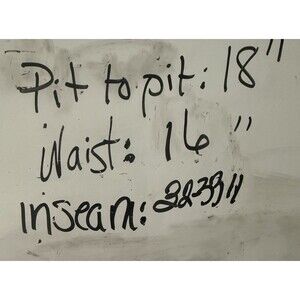 Pit to pit: 18"
Waist: 16"
inseam: